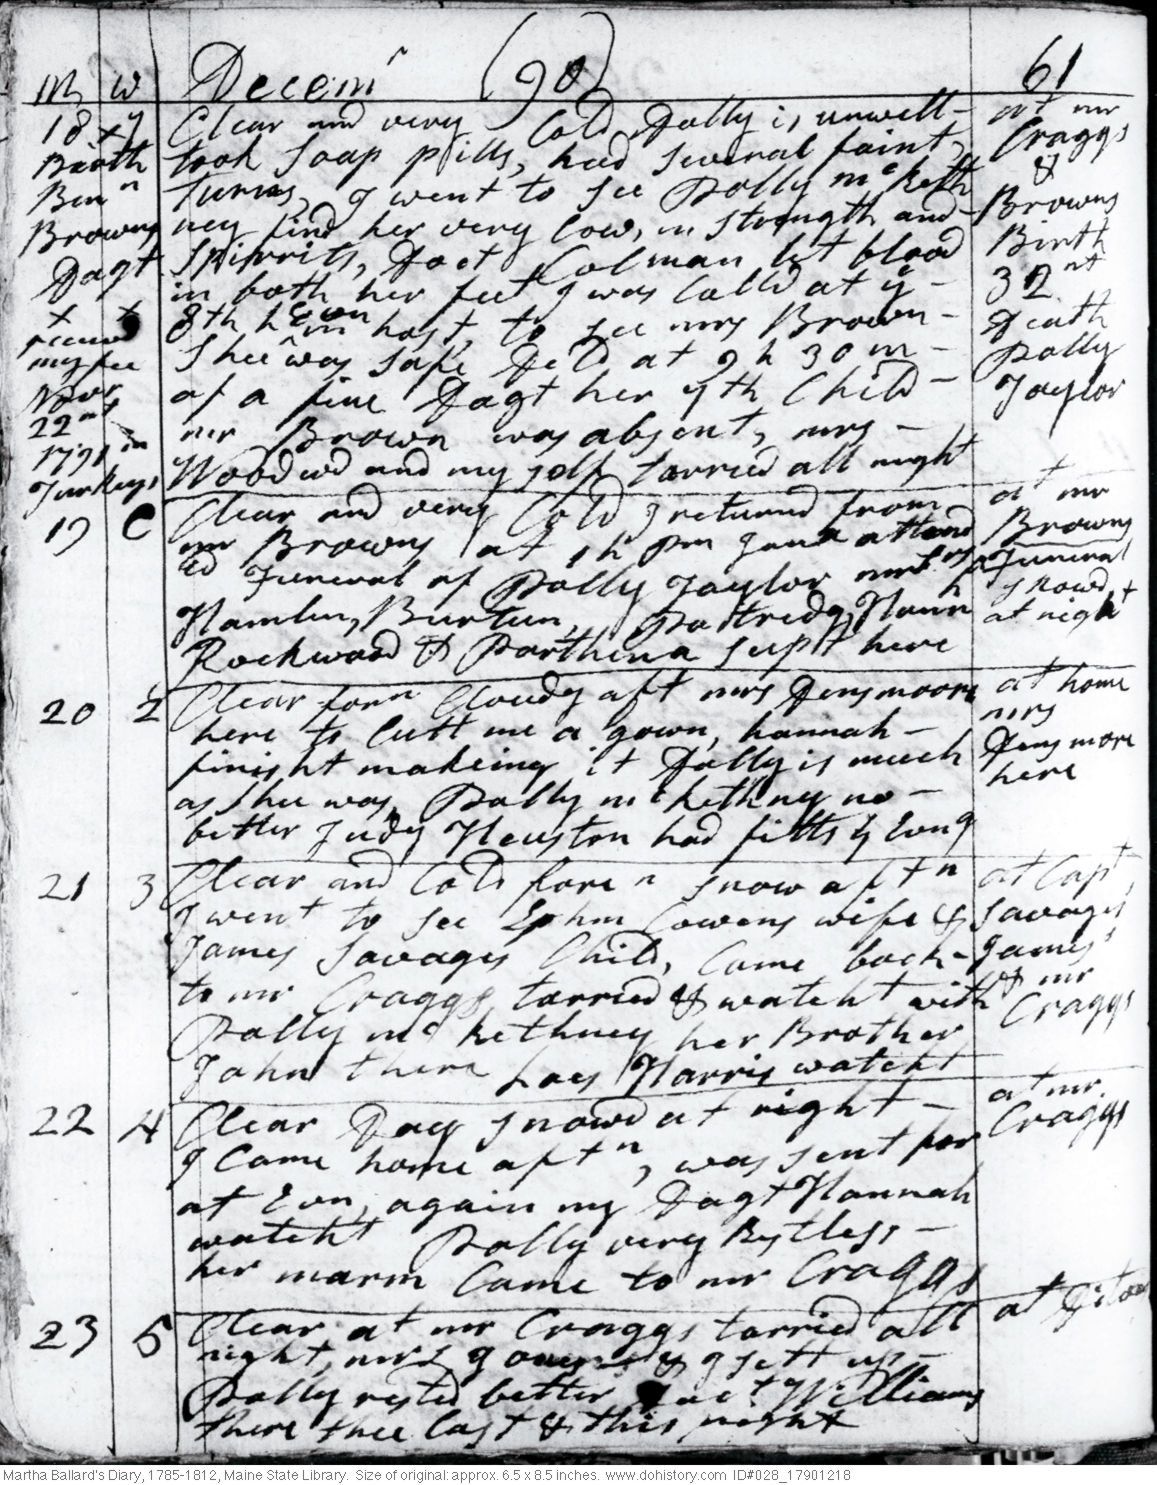 M W Decemr (90) 61
18 x 7 Clear and very Cold Dolly is unwell - at mr
Birth took Soap pills, had Several faint, Craggs
Benn Turns, I went to See Polly mc Keth &
Browns ney find her very low, in strength and - Browns
Dagt Spirrits, Doct Colman let blood Birth
x x in both her feet I was Calld at ye - 32nt
receivd 8th h Evn in hast, to see mrs Brown - Death
my fee Shee was safe Deld at 9 h 30 m - Polly
Novr of a fine Dagt her 7th Child - Taylor
22nt mr Brown was absent, mrs -
1791 in Woodwd and my self tarried all night
Turkeys
19 C Clear and very Cold I returnd from at mr
mr Browns at 1h pm Jona attend Browns
ed Funeral of Polly Taylor mrs Funeral
Hamlin, Burtun, Partridg, Hann h snowd
Rockwood & Parthena Slept here at night
20 2 Clear forn Cloudy aft mrs Densmoore at home
here to Cutt me a gown, hannah - mrs
finisht makeing it Dolly is much Densmore
as shee was, Polly mc kethney no - here
better Judy Heuston had fitts ys Evng
21 3 Clear and Cold foren snow aftn at Capt,
I went to see Ephm Cowens wife & Savages
James Savages Child, Came back - James's
to mr Craggs tarried & watcht with & mr
Polly mc Kethney her Brother Craggs
John there Lacy Harris watcht
22 4 Clear Day snowd at night - at mr
I Came home aftn, was sent for Craggs
at Evn, again my Dagt Hannah
watcht Polly very Restless -
her marm Came to mr Craggs
23 5 Clear, at mr Craggs tarried all at Ditoe
night, mrs & I sett up -
Polly rested better Doct Williams
there thee last & this night
Martha Ballard's Diary, 1785-1812, Maine State Library. Size of original: approx. 6.5 x 8.5 inches. www.dohistory.com ID#028_17901218